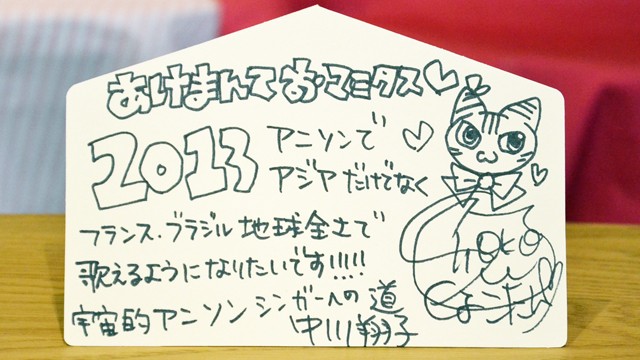 あけまんておめでマミタス♡
2013 アニソンで
アジアだけでなく
フランス・ブラジル 地球全立で
歌えるようになりたいです!!!!!
宇宙的アニソンシンガーへの道
中川翔子